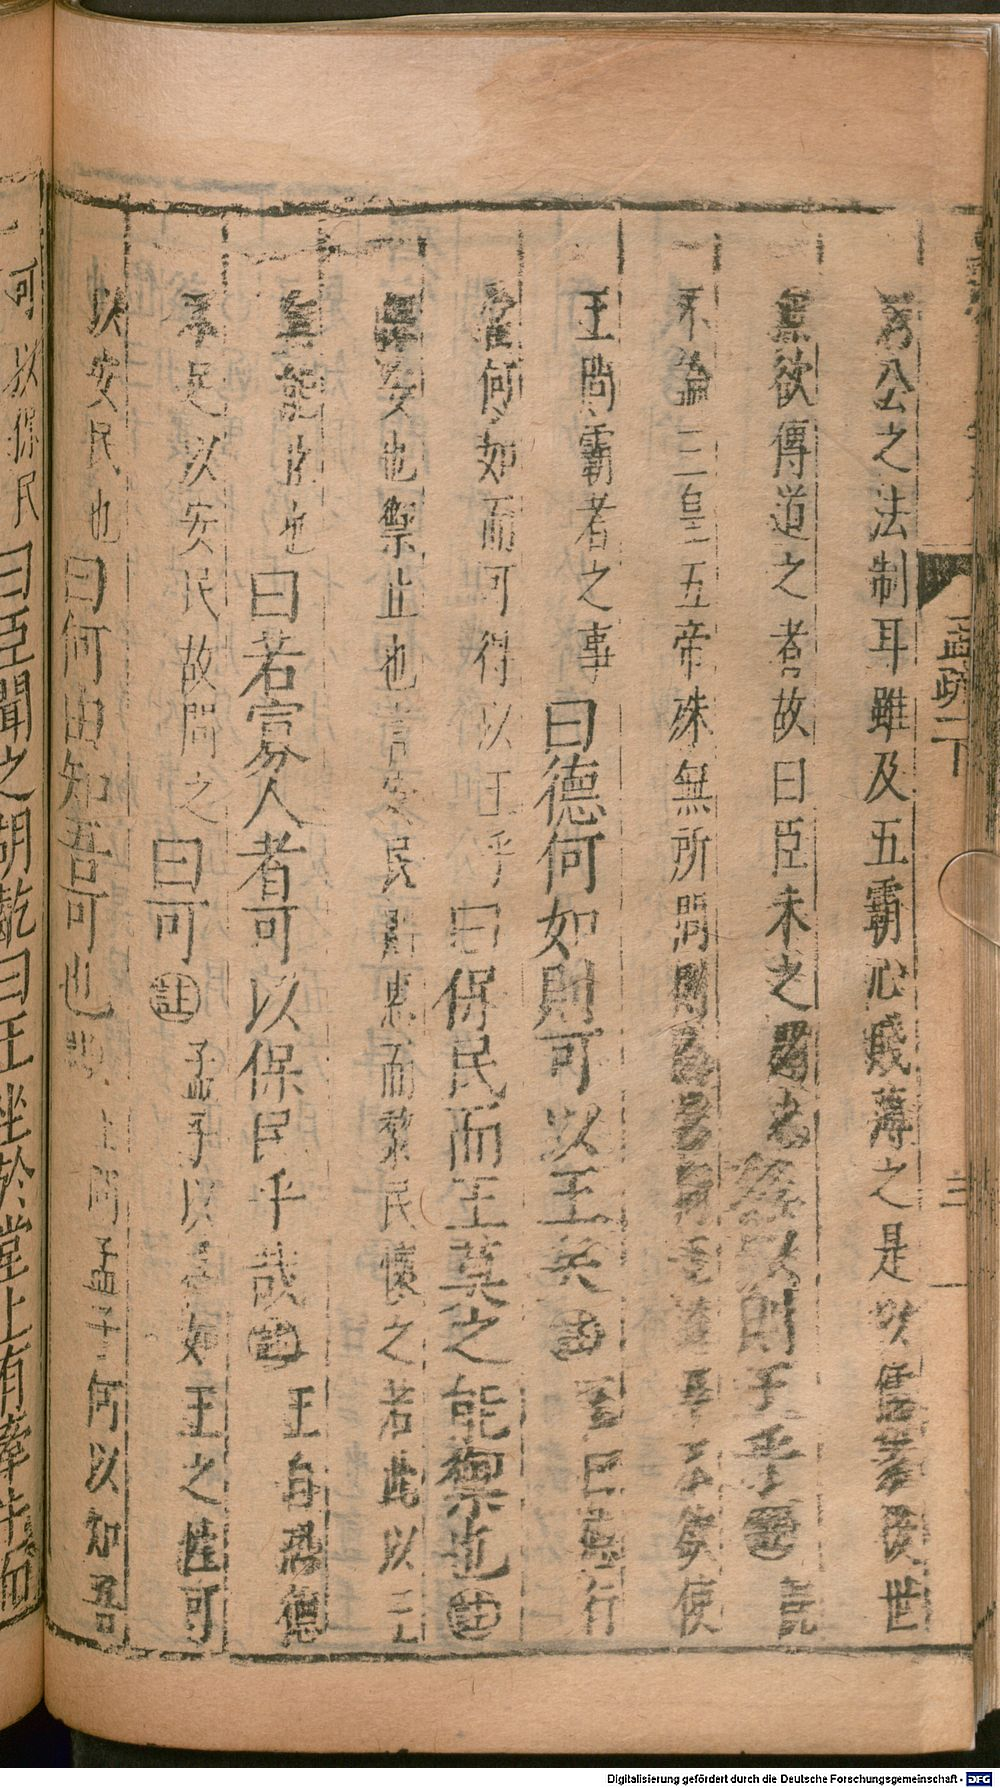 為公之法制耳雖及五霸心賤薄之是以儒家後世
無欲傳道之者故曰臣未之聞也無以則王乎註言
不論三皇五帝殊無所問則尚當問王道耳不欲使
王問霸者之事曰德何如則可以王矣註王曰德行
當何如而可得以王乎曰保民而王莫之能禦也註
保安也禦止也言安民則惠而黎民懷之若此以王
無能止也曰若寡人者可以保民乎哉註王自恐德
不足以安民故問之曰可註孟子以為如王之性可
以安民也曰何由知吾可也註王問孟子何以知吾
可以保民曰臣聞之胡齕曰王坐於堂上有牽牛而
孟疏一下
三
Digitalisierung gefördert durch die Deutsche Forschungsgemeinschaft - DFG